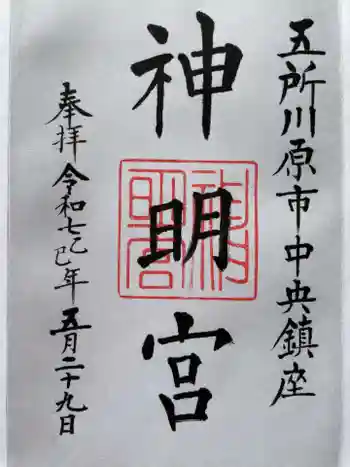 五所川原市中央鎮座
神明宮
奉拝令和七乙巳年五月二十九日